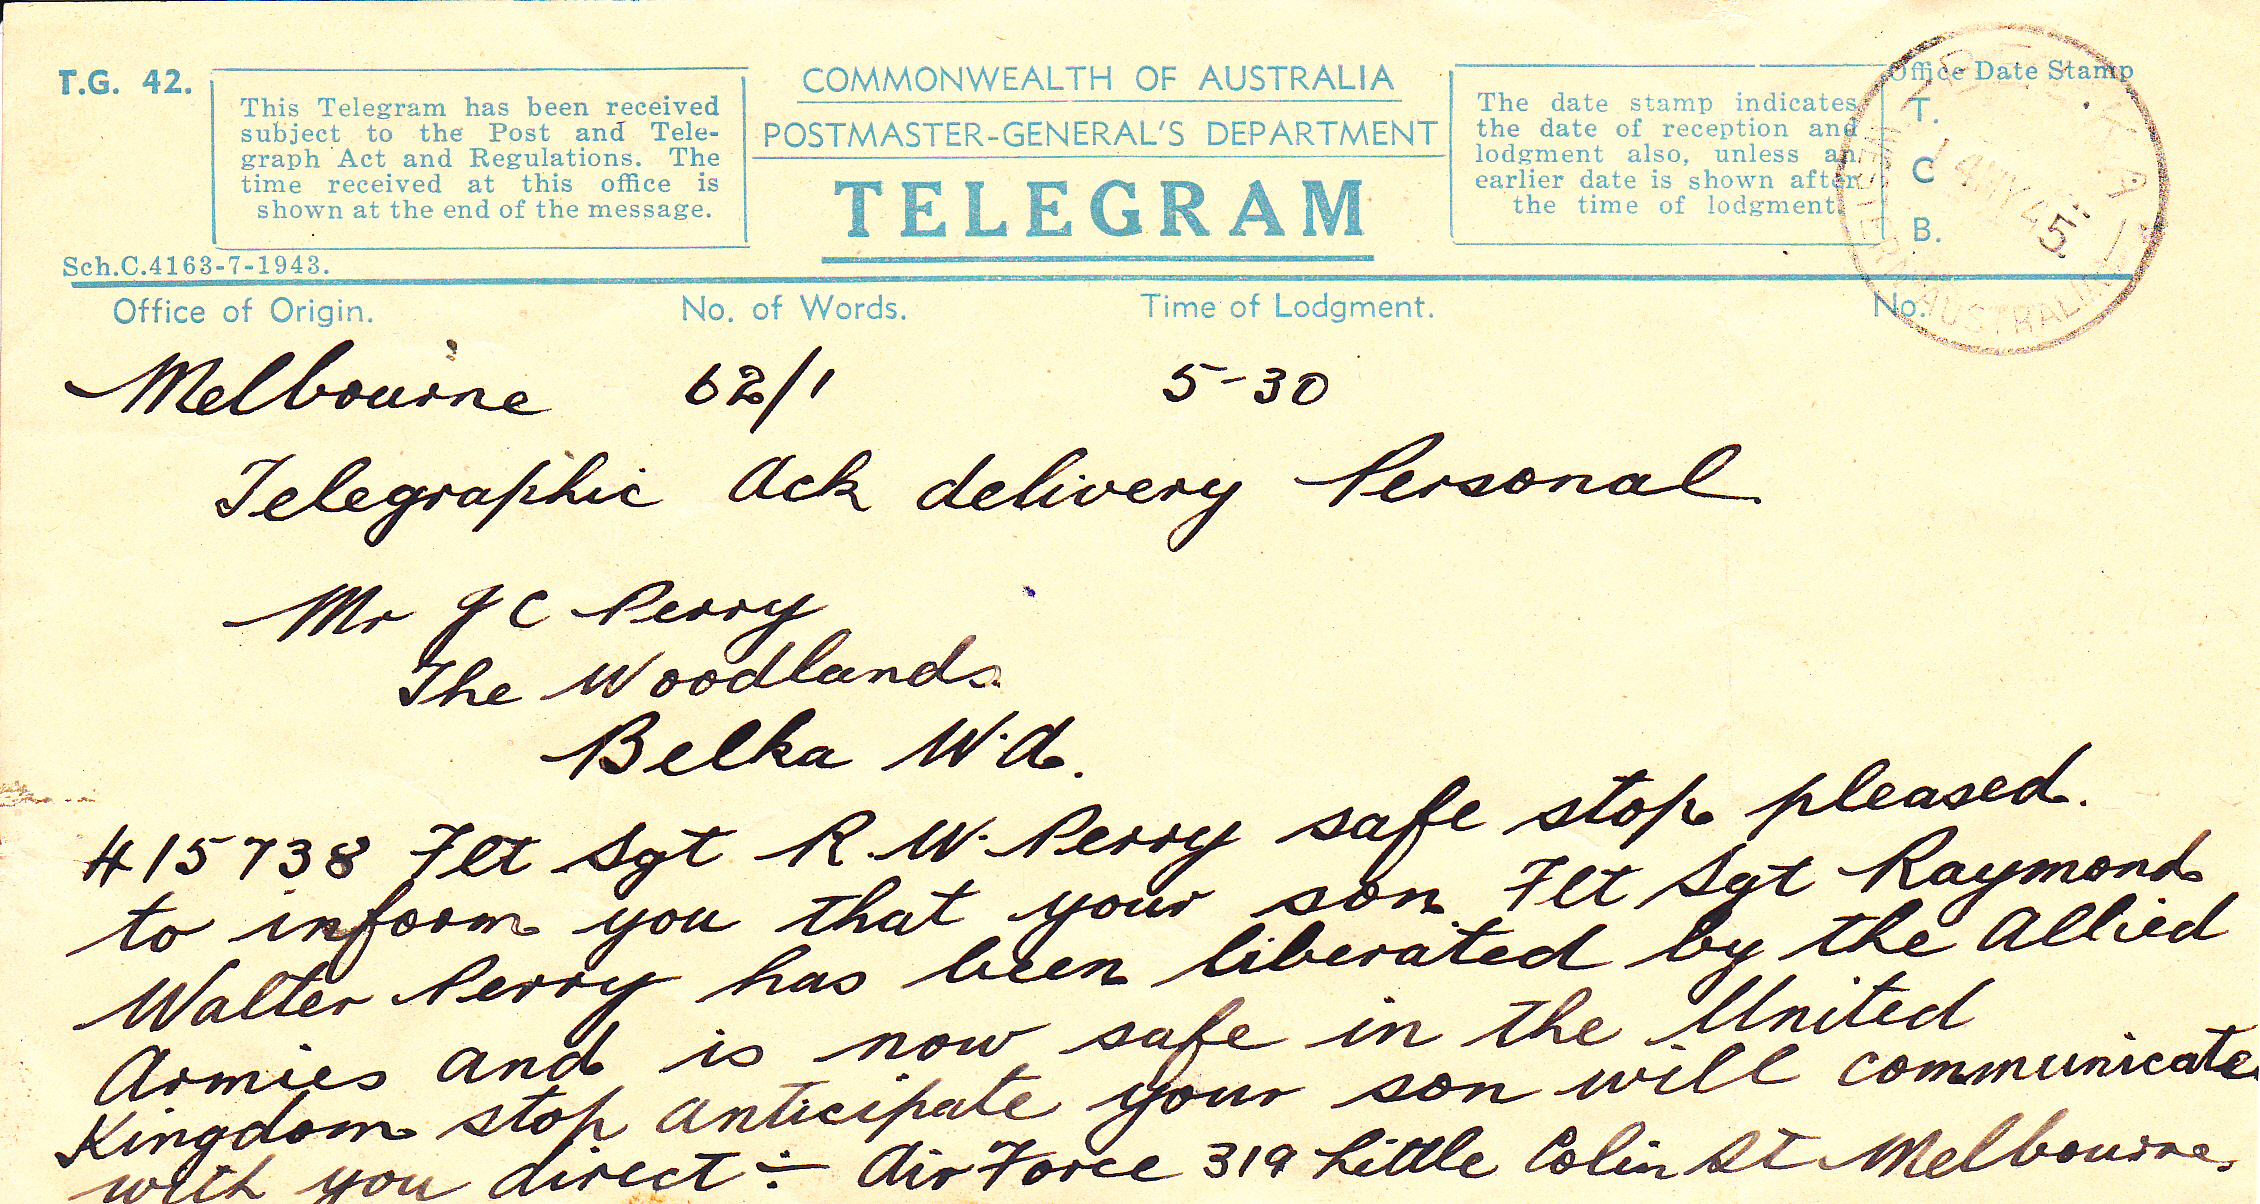 T.G. 42.
This Telegram has been received
subject to the Post and Tele-
graph Act and Regulations. The
time received at this office is
shown at the end of the message.
Sch.C.4163-7-1943.
COMMONWEALTH OF AUSTRALIA
POSTMASTER-GENERAL'S DEPARTMENT
TELEGRAM
The date stamp indicates
the date of reception and
lodgment also, unless an
earlier date is shown after
the time of lodgment.
Office Date Stamp
T.
C
B.
BELKA
14MY45
WESTERN AUSTRALIA
Office of Origin. No. of Words. Time of Lodgment. No.
Melbourne 62/1 5-30
Telegraphic Ack delivery Personal
Mr J C Perry
The Woodlands
Belka W.A.
415738 Flt Sgt R.W. Perry safe stop pleased.
to inform you that your son Flt Sgt Raymond
Walter Perry has been liberated by the Allied
Armies and is now safe in the United
Kingdom stop anticipate your son will communicate
with you direct ÷ Air Force 319 Little Colin St Melbourne.